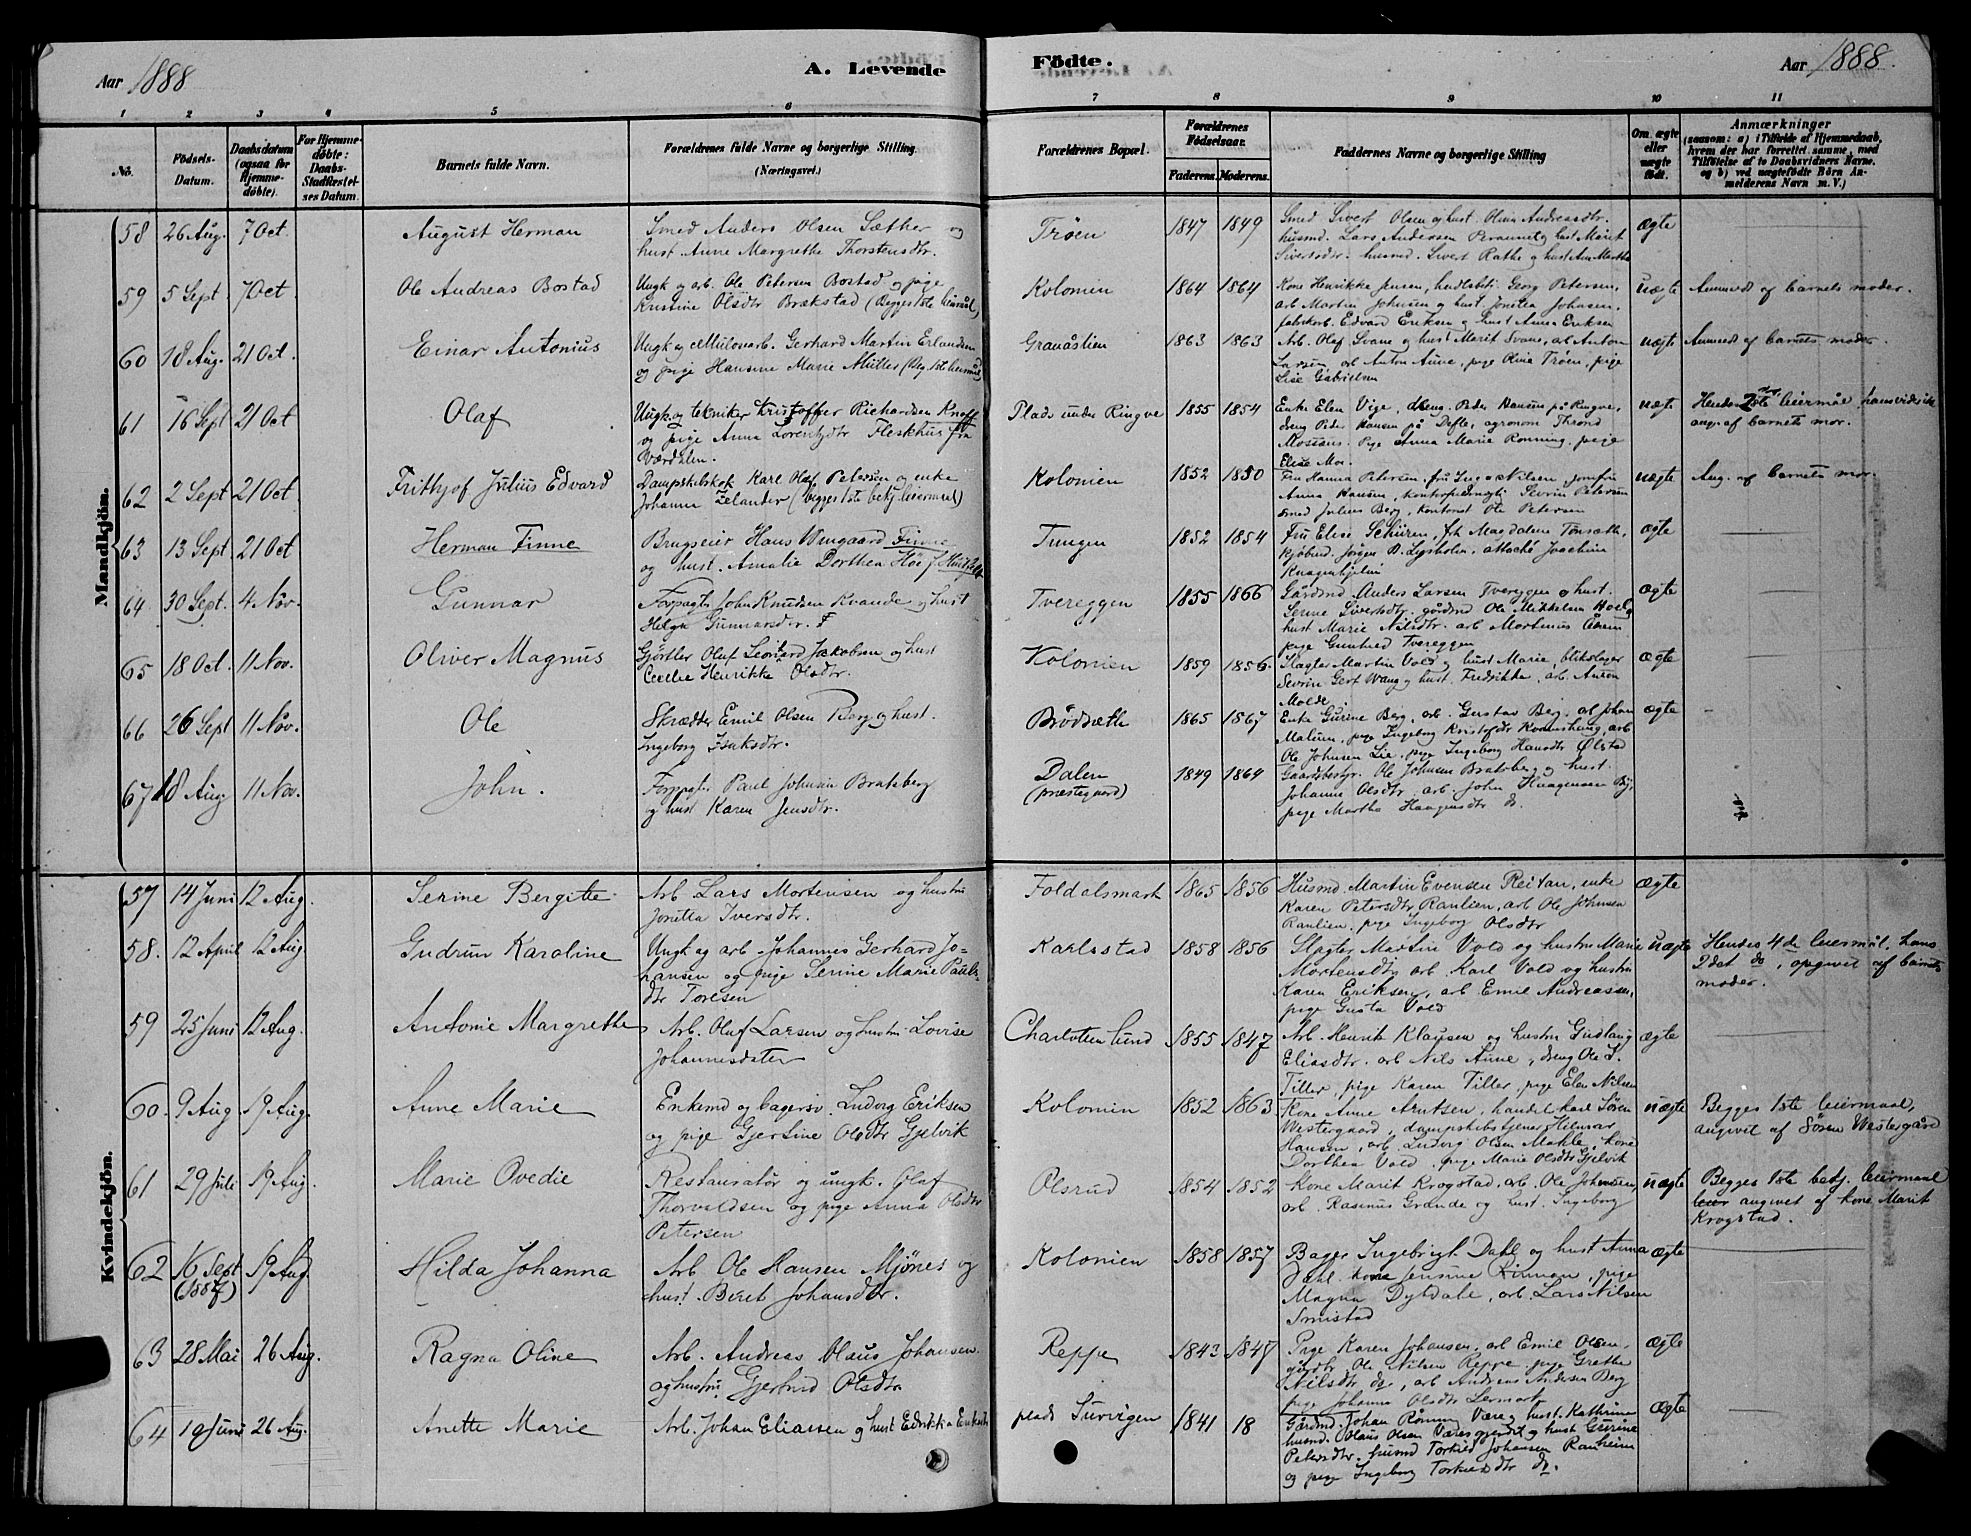 Aar 1888
A. Levende
Fødte.
Aar 1888.
1 2 3 4 5 6 7 8 9 10 11
No.
Födsels-Datum.
Daabsdatum (ogsaa for Hjemme-döbte).
For Hjemme-döbte: Daabs-Stadfæstel-ses Datum.
Barnets fulde Navn.
Forældrenes fulde Navne og borgerlige Stilling.
(Næringsvei.)
Forældrenes Bopæl.
Forældrenes Födselsaar.
Faderens. Moderens.
Faddernes Navne og borgerlige Stilling
Om ægte eller uægte födt.
Anmærkninger
(saasom: a) i Tilfælde af Hjemmedaab, hvem der har forrettet samme, med Tilföielse af to Daabsvidners Navne, og b) ved uægtefödte Börn An-melderens Navn m. V.)
Mandkjön.
58 26 Aug. 7 Oct. August Herman
Smed Anders Olsen Sæther og
hust Anne Margrethe Thorstensdtr.
Trøen 1847 1849
Smed Sivert Olsen og hust. Olina Andreasdtr.
husmd. Lars Andersen og hust Marit
Sivertsdtr. husmd. Sivert Rathe og hust Ane Martha
ægte
59 5 Sept 7 Oct. Ole Andreas Bostad
Ungk og arb. Ole Petersen Bostad og pige
Kristine Olsdtr Brækstad (Begges 1ste leiermål)
Kolonien 1864 1864
Kone Henrikke Jensen, Georg Petersen,
arb Martin Johnsen og hust Jonetta Johnsen,
fabrikarb. Edvard Eriksen og hust Anna Eriksen
uægte Anmeldt af barnets moder.
60 18 Aug. 21 Oct. Einar Antonius
Ungk og cellulosarb. Gerhard Martin Erlandsen
og pige Hansine Marie Müller (Beg. 1ste leiermål)
Granåslien 1863 1863
Arb. Olaf Svane og hust Marit Svane, arb Anton
Larsen, arb Anton Aune, pige Olina Trøen, pige
Lise Gabrielsen
uægte Anmeldt af barnets moder.
61 16 Sept 21 Oct Olaf
Ungk og tekniker Kristoffer Richardsen Knoff
og pige Anna Lorentsdtr Fleskhus fra
Værdalen.
Plads under Ringve 1855 1854
Enke Elen Vige, dreng. Peder Hansen på Ringve,
dreng Peder Hansen på Defle, agronom Thrond
Mostaus. Pige Anna Marie Rønning, pige
Elise Moe.
uægte Hendes 2det leiermål, hans vides ikke
angiv. af barnets mor.
62 2 Sept 21 Oct Frithjof Julius Edvard
Dampskibskok Karl Olaf Petersen og enke
Johanna Zelander (begges 1ste betj. leiermaal)
Kolonien 1852 1850
Fru Hanna Petersen, fru Inga Nilsen, jomfru
Anna Hansen, Sevrin Petersen
smed Julius Berg, kontorist Ole Petersen
uægte Ang. af barnets mor.
63 13 Sept 21 Oct Herman Finne
Brugseier Hans Wingaard Finne
og hust. Amalie Dorthea Høe f.
Tungen 1852 1854
Fru Elise Schiren, frk Magdalene Tonseth,
kjøbmd. Jørgen B. Lysholm, attaché Joachim
Knagenhjelm
ægte
64 30 Sept. 4 Nov. Gunnar
Forpagter John Knudsen Kvande og hust
Helga Gunnarsdtr.
Tvereggen 1855 1866
Gårdmd. Anders Larsen Tvereggen og hust.
Serine Sivertsdtr. gårdmd Ole Mikkelsen Hoel og
hust Marie Nilsdtr. arb Mortinus Aasen
pige Gunhild Tvereggen
ægte
65 18 Oct. 11 Nov. Oliver Magnus
Gjørtler Oluf Leonard Jakobsen og hust
Cecilie Henrikke Olsdtr.
Kolonien 1859 1856.
Slagter Martin Vold og hust Marie, blikslager
Sevrin Gert Wang og hust. Fredrikke, arb. Anton
Molde.
ægte
66 26 Sept 11 Nov. Ole
Skrædder Emil Olsen Berg og hust.
Ingeborg Isaksdtr.
Brødsæth 1865 1867
Enke Gurine Berg, arb. Gustav Berg, arb Johan
Malum, pige Ingeborg Kristofdtr, arb
Ole Johnsen Lie, pige Ingeborg Hansdtr Ølstad
ægte
67 18 Aug. 11 Nov. John.
Forpagter Paul Johnsen Bratsberg
og hust Karen Jensdtr.
Dalen
(præstegaard) 1849 1864
Gaardbestyr. Ole Johnsen Bratsberg og hust.
Johanne Olsdtr. arb. John Haagensen By,
pige Martha Haagensdtr do.
Kvindekjön.
57 14 Juni 12 Aug. Serine Bergitte
Arb. Lars Mortensen og hustru
Jonetta Iversdtr.
Foldalsmark 1865 1856
Husmd. Martin Evensen Reitan, enke
Karen Petersdtr Ranlien, arb Ole Johnsen
Ranlien, pige Ingeborg Olsdtr
ægte
58. 12 April 12 Aug. Gudrun Karoline
Ungk og arb. Johannes Gerhard Jo-
hansen og pige Serine Marie Pauls-
dtr Toresen
Karlsstad 1858 1856
Slagter Martin Vold og hustru Marie
Mortensdtr, arb. Karl Vold og hustru
Karen Eriksen, arb Emil Andreassen,
pige Gusta Vold
uægte Hendes 4de leiermål, hans
2det do, opgivet af barnets
moder.
59 25 Juni 12 Aug. Antonie Margrethe
Arb. Oluf Larsen og hustru Lovise
Johannesdatter
Charlottenlund 1855 1847
Arb. Henrik Klausen og hustru Gudlaug
Eliasdtr. arb Nils Aune, dreng Ole S.
Tiller, pige Karen Tiller, pige Elen Nilsen
ægte
60. 9 Aug 19 Aug. Anne Marie
Enkemd og bagersv. Ludvig Eriksen
og pige Gjertine Olsdtr Gjelvik
Kolonien 1852 1863
Kone Anne Arntsen, handelskarl Søren
Westergaard, dampskibstjener Hilmar
Hansen, arb. Ludvig Olsen Mohle, kone
Dorthea Vold, pige Marie Olsdtr Gjelvik
uægte Begges 1ste leiermaal,
angivet af Søren Westergård
61 29 Juli 19 Aug. Marie Ovedie
Restauratør og ungk. Olaf
Thorvaldsen og pige Anna Olsdtr
Petersen
Olsrud 1854 1852
Kone Marit Krogstad, arb. Ole Johansen,
arb. Rasmus Grande og hust. Ingeborg
uægte Begges 1ste betj. leiermaal
angivet af kone Marit
Krogstad.
62 16 Sept 19 Aug. Hilda Johanna
(1887)
Arb. Ole Hansen Mjønes og
hust. Beret Johansdtr.
Kolonien 1858 1857
Bager Ingebrigt Dahl og hust Anna
Dahl. kone Jensine Rinman, pige
Magna Dybdahl, arb. Lars Nilsen
Smistad
ægte
63 28 Mai 26 Aug. Ragna Oline
Arb. Andreas Olaus Johansen.
og hustru Gjertrud Olsdtr
Reppe 1843 1847
Pige Karen Johansen, arb Emil Olsen,
gårdbr. Ole Nilsen Reppe, pige Grethe
Nilsdtr do, arb Andreas Andersen Berg
pige Johanna Olsdtr
ægte
64 19 Juni 26 Aug. Anette Marie
Arb. Johan Eliassen og hust Edrikka Eriksdtr
plads Survigen 1841 18
Gårdmd. Johan Rønning Være og hust. Kathrine
husmd. Olaus Olsen Væresgjerdet og hust Gurine
Petersdtr. husmd Torkild Johansen Ranheim
og pige Ingeborg Torkildsdtr do.
ægte